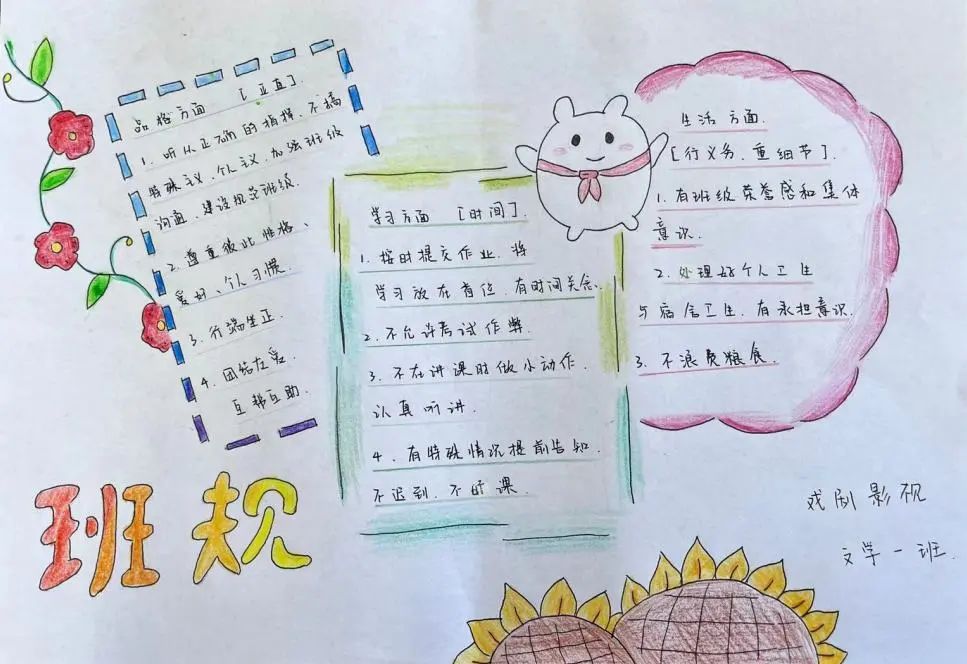 品格方面 [正直]
1、听从正确的指挥,不搞
特殊主义、个人主义,加强班级
沟通,建设规范班级.
2、尊重彼此性格、
爱好、个人习惯.
3、行端坐正.
4、团结友爱.
互帮互助.
学习方面 [时间].
1、按时提交作业.将
学习放在首位,有时间关念、
2、不允许考试作弊.
3、不在讲课时做小动作.
认真听讲.
4、有特殊情况提前告知.
不迟到,不旷课.
生活方面.
[行义务、重细节].
1、有班级荣誉感和集体
意识.
2、处理好个人卫生
与宿舍卫生,有承担意识.
3、不浪费粮食.
班规
戏剧影视
文学一班.